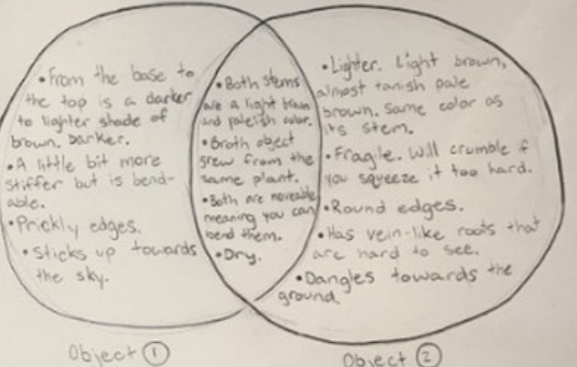 • From the base to
the top is a darker
to lighter shade of
brown. Darker.
• A little bit more
stiffer but is bend-
able.
• Prickly edges.
• Sticks up towards
the sky.
• Both stems
are a light brown
and paleish color.
• Broth object
grew from the
same plant.
• Both are moveable
meaning you can
bend them.
• Dry.
• Lighter. Light brown,
almost tanish pale
brown. Same color as
its stem.
• Fragile. Will crumble if
you squeeze it too hard.
• Round edges.
• Has vein-like roots that
are hard to see.
• Dangles towards the
ground.
Object 1
Object 2